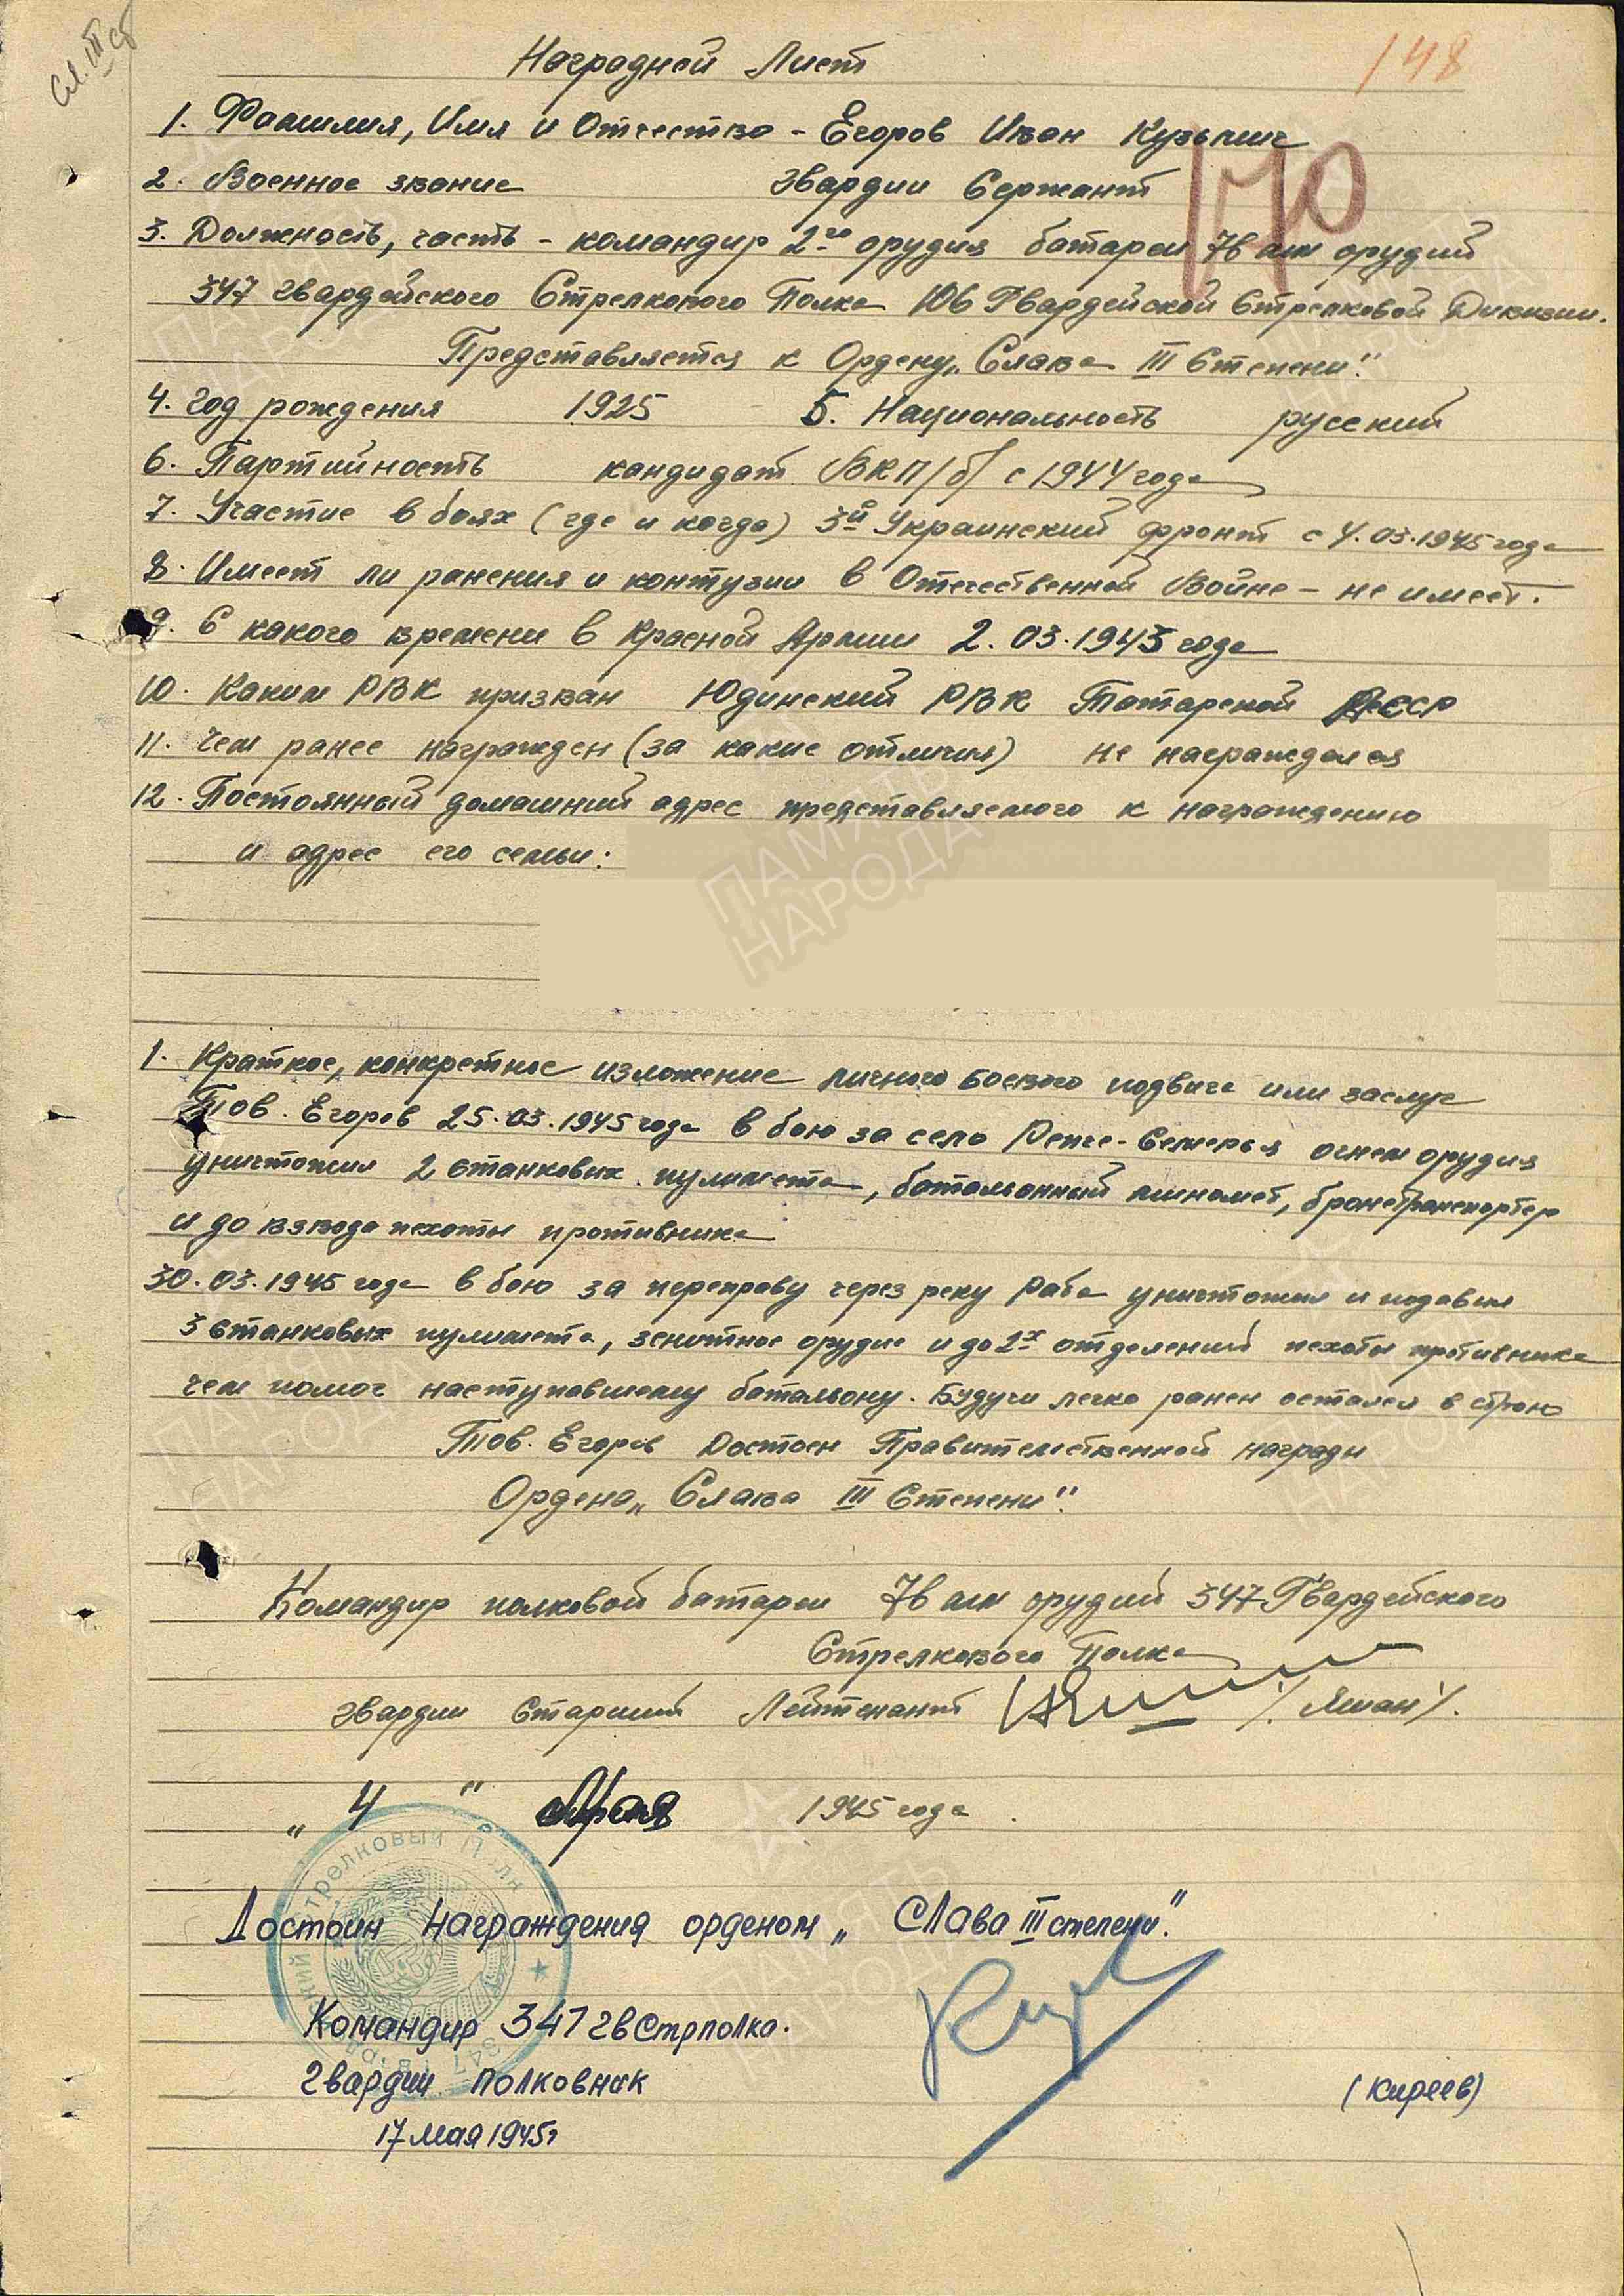 Сл. III ст
148
Наградной Лист
1. Фамилия, Имя и Отчество - Егоров Иван Кузьмич
170
2. Военное звание гвардии Сержант
3. Должность, часть - командир 2го орудия батареи 76 мм орудий
347 гвардейского Стрелкового Полка 106 Гвардейской Стрелковой Дивизии.
Представляется к Ордену „Слава III Степени".
4. Год рождения 1925 5. Национальность русский
6. Партийность кандидат ВКП/б/ с 1944 года
7. Участие в боях (где и когда) 3й Украинский фронт с 4.03.1945 года
8. Имеет ли ранения и контузии в Отечественной Войне - не имеет.
9. С какого времени в Красной Армии 2.03.1943 года
10. Каким РВК призван Юдинский РВК Татарской АССР
11. Чем ранее награжден (за какие отличия) не награждался
12. Постоянный домашний адрес представляемого к награждению
и адрес его семьи:
1. Краткое, конкретное изложение личного боевого подвига или заслуг
Тов. Егоров 25.03.1945 года в бою за село Репче-Семерья огнем орудия
уничтожил 2 станковых пулимета, батальонный миномет, бронетранспортер
и до взвода пехоты противника
30.03.1945 года в бою за переправу через реку Раба уничтожил и подавил
3 станковых пулимета, зенитное орудие и до 2х отделений пехоты противника
чем помог наступавшему батальону. Будучи легко ранен остался в строю
Тов. Егоров Достоен Правительственной награды
Ордена „Слава III Степени".
Командир полковой батареи 76 мм орудий 347 Гвардейского
Стрелкового Полка
гвардии Старший Лейтенант /Яман/.
„4" Мая 1945 года
Достоин награждения орденом „СЛава III степени".
Командир 347 гв Стрполка.
Гвардии полковник (Киреев)
17 мая 1945г
стрелковый полк
347
ПАМЯТЬ НАРОДА